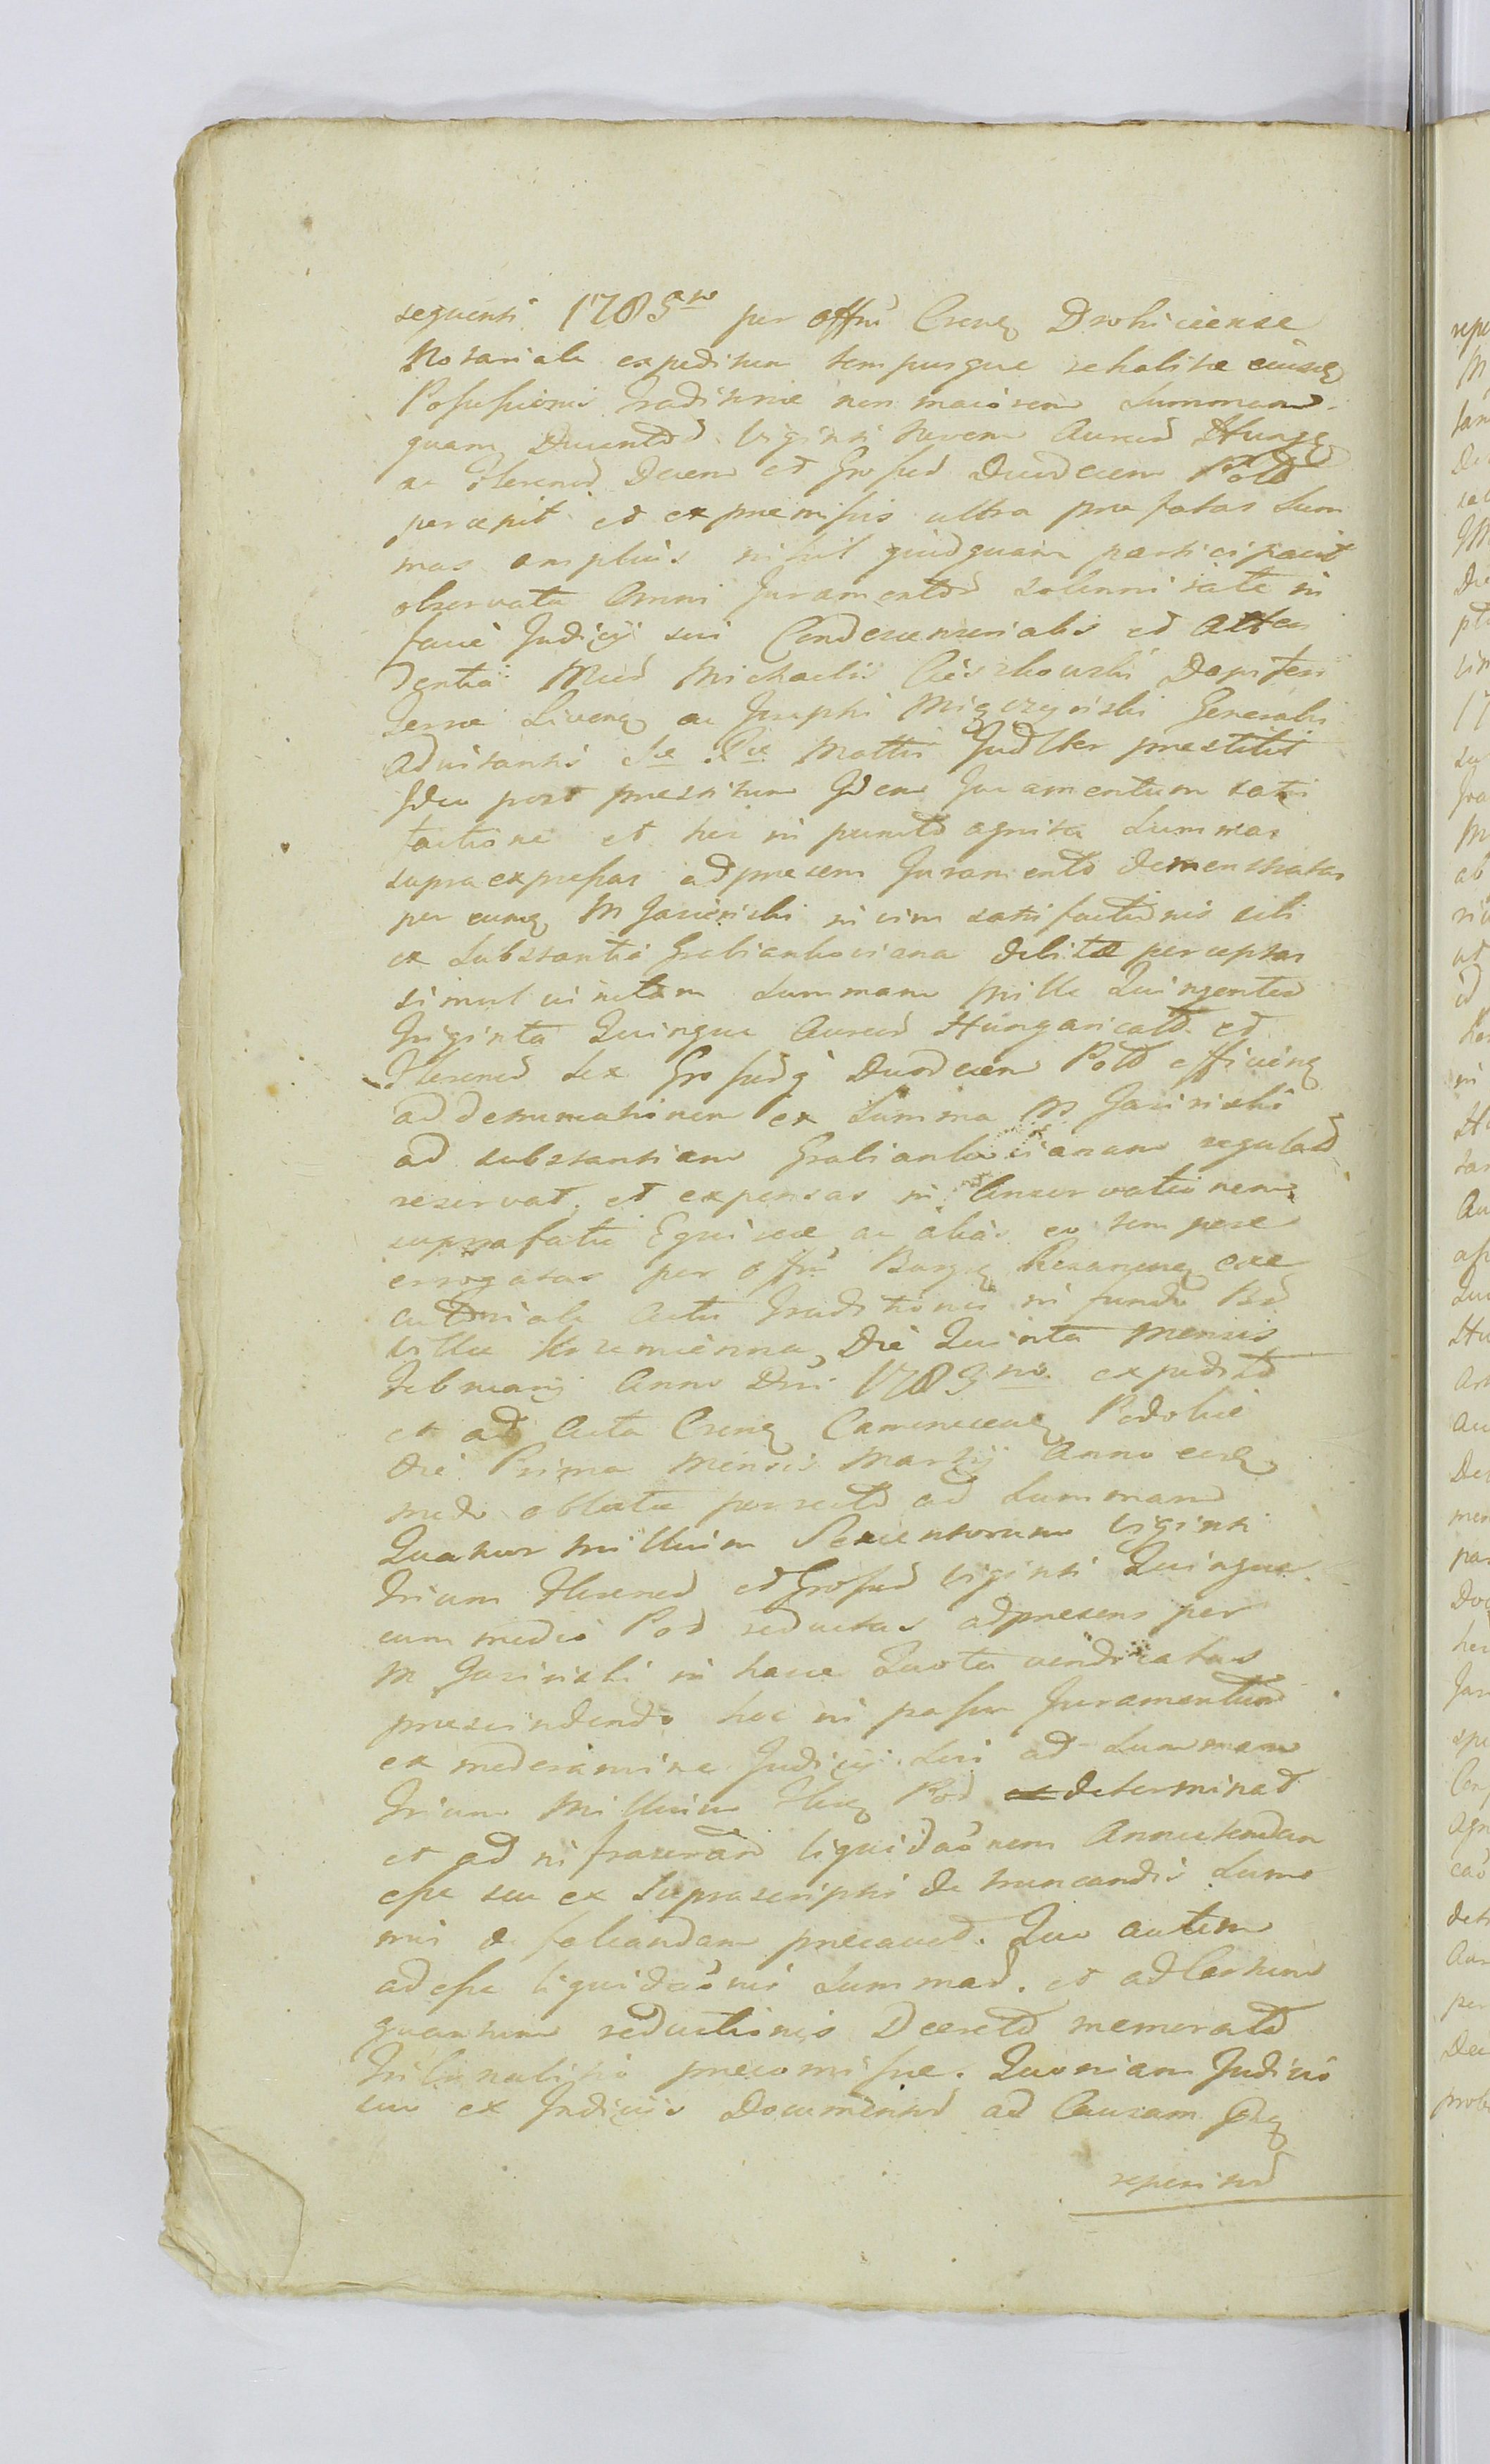 sequenti 1785to per Offm Crensę Drohiciense
Notariale expeditum tempusque rehabitæ eiusdę
Possessionis Traditoriæ non maiorem Summam
quam Ducentd Viginti Novem Aured Hungę
ac Florend Decem et Grossed Duodecem Pold
percepit et ex præmissis ultra præfatas Sum
mas amplius nihil quidquam participavit
observata Omni Juramentd solennitate in
facie Judicij sui Condescensorialis et Atten
dentia Mcd Michaelis Cieszkowski Dapiferi
Terræ Livenę ac Josephi Miączyński Generalis
Advitantis Sæ Ræ Mattis Judlter præstitit
Ideo post præstitum Idem Juramentum satis
factione et hoc in punctd agnita Summas
supraexpressas adpræsens Juramento demonstratas
per eumę M Jasiński in vim satisfactionis sibi
ex Substantia Grabiankoviana debitæ perceptas
simul unitam Summam Mille Quingented
Triginta Quinque Aured Hungaricald et
Florened Sex Grossedq Duodecem Pold efficienę
ad detruncationem ex Summa M Jasiński
ad substantiam Grabiankovianam regulad
reservat, et expensas in Conservationem
suprafatæ Equitæ ac alias eo tempore
errogatas per Offm Burgę exe
cutoriale Actu Traditionis in fundo Bd
Villæ Krzemienna, Die Quinta Mensis
Februarij Anno Dni 1783tio expeditd
et ad Acta Crenę Camenecenę Podoliæ
die Prima Mensis Martij Anno eodę
modo oblatæ persctd ad Summam
Quatuor Millium Sexcentorum Viginti
Trium Florened et Grossed Viginti Quinque
cum medio Pod reductas adpræsens per
M Jasinski in hacce Quota vendicatas
præscindendo hoc in passu Juramentum
ex moderamine Judicij Sui ad Summam
Trium Millium Florę Pod determinat
et ad infrascrand liquidaõnem Annectendam
esse seu ex Suprascriptis detruncandis Sum
mis defalcandam præcavet. Quo autem
adesse liquidaõnis Summad. et ad Certum
quantum reductionis Decretd memoratd
Tribunalitio præcomissæ. Quoniam Judicio
suo ex Indicijs Documentod ad Causam Phę
reperitod